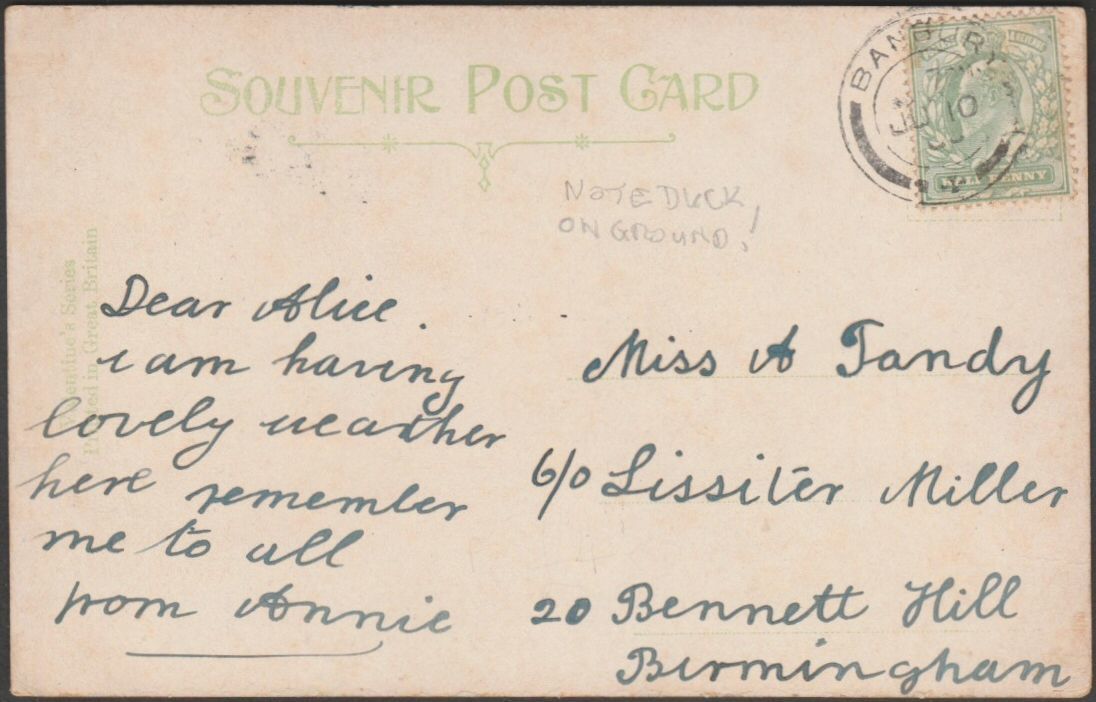 SOUVENIR POST CARD
BANBURY
10
HALFPENNY
NOTE DUCK
ON GROUND!
Valentine's Series
Printed in Great Britain
Dear Alice.
i am having
lovely weather
here remember
me to all
from Annie
Miss A Tandy
c/o Lissiter Miller
20 Bennett Hill
Birmingham